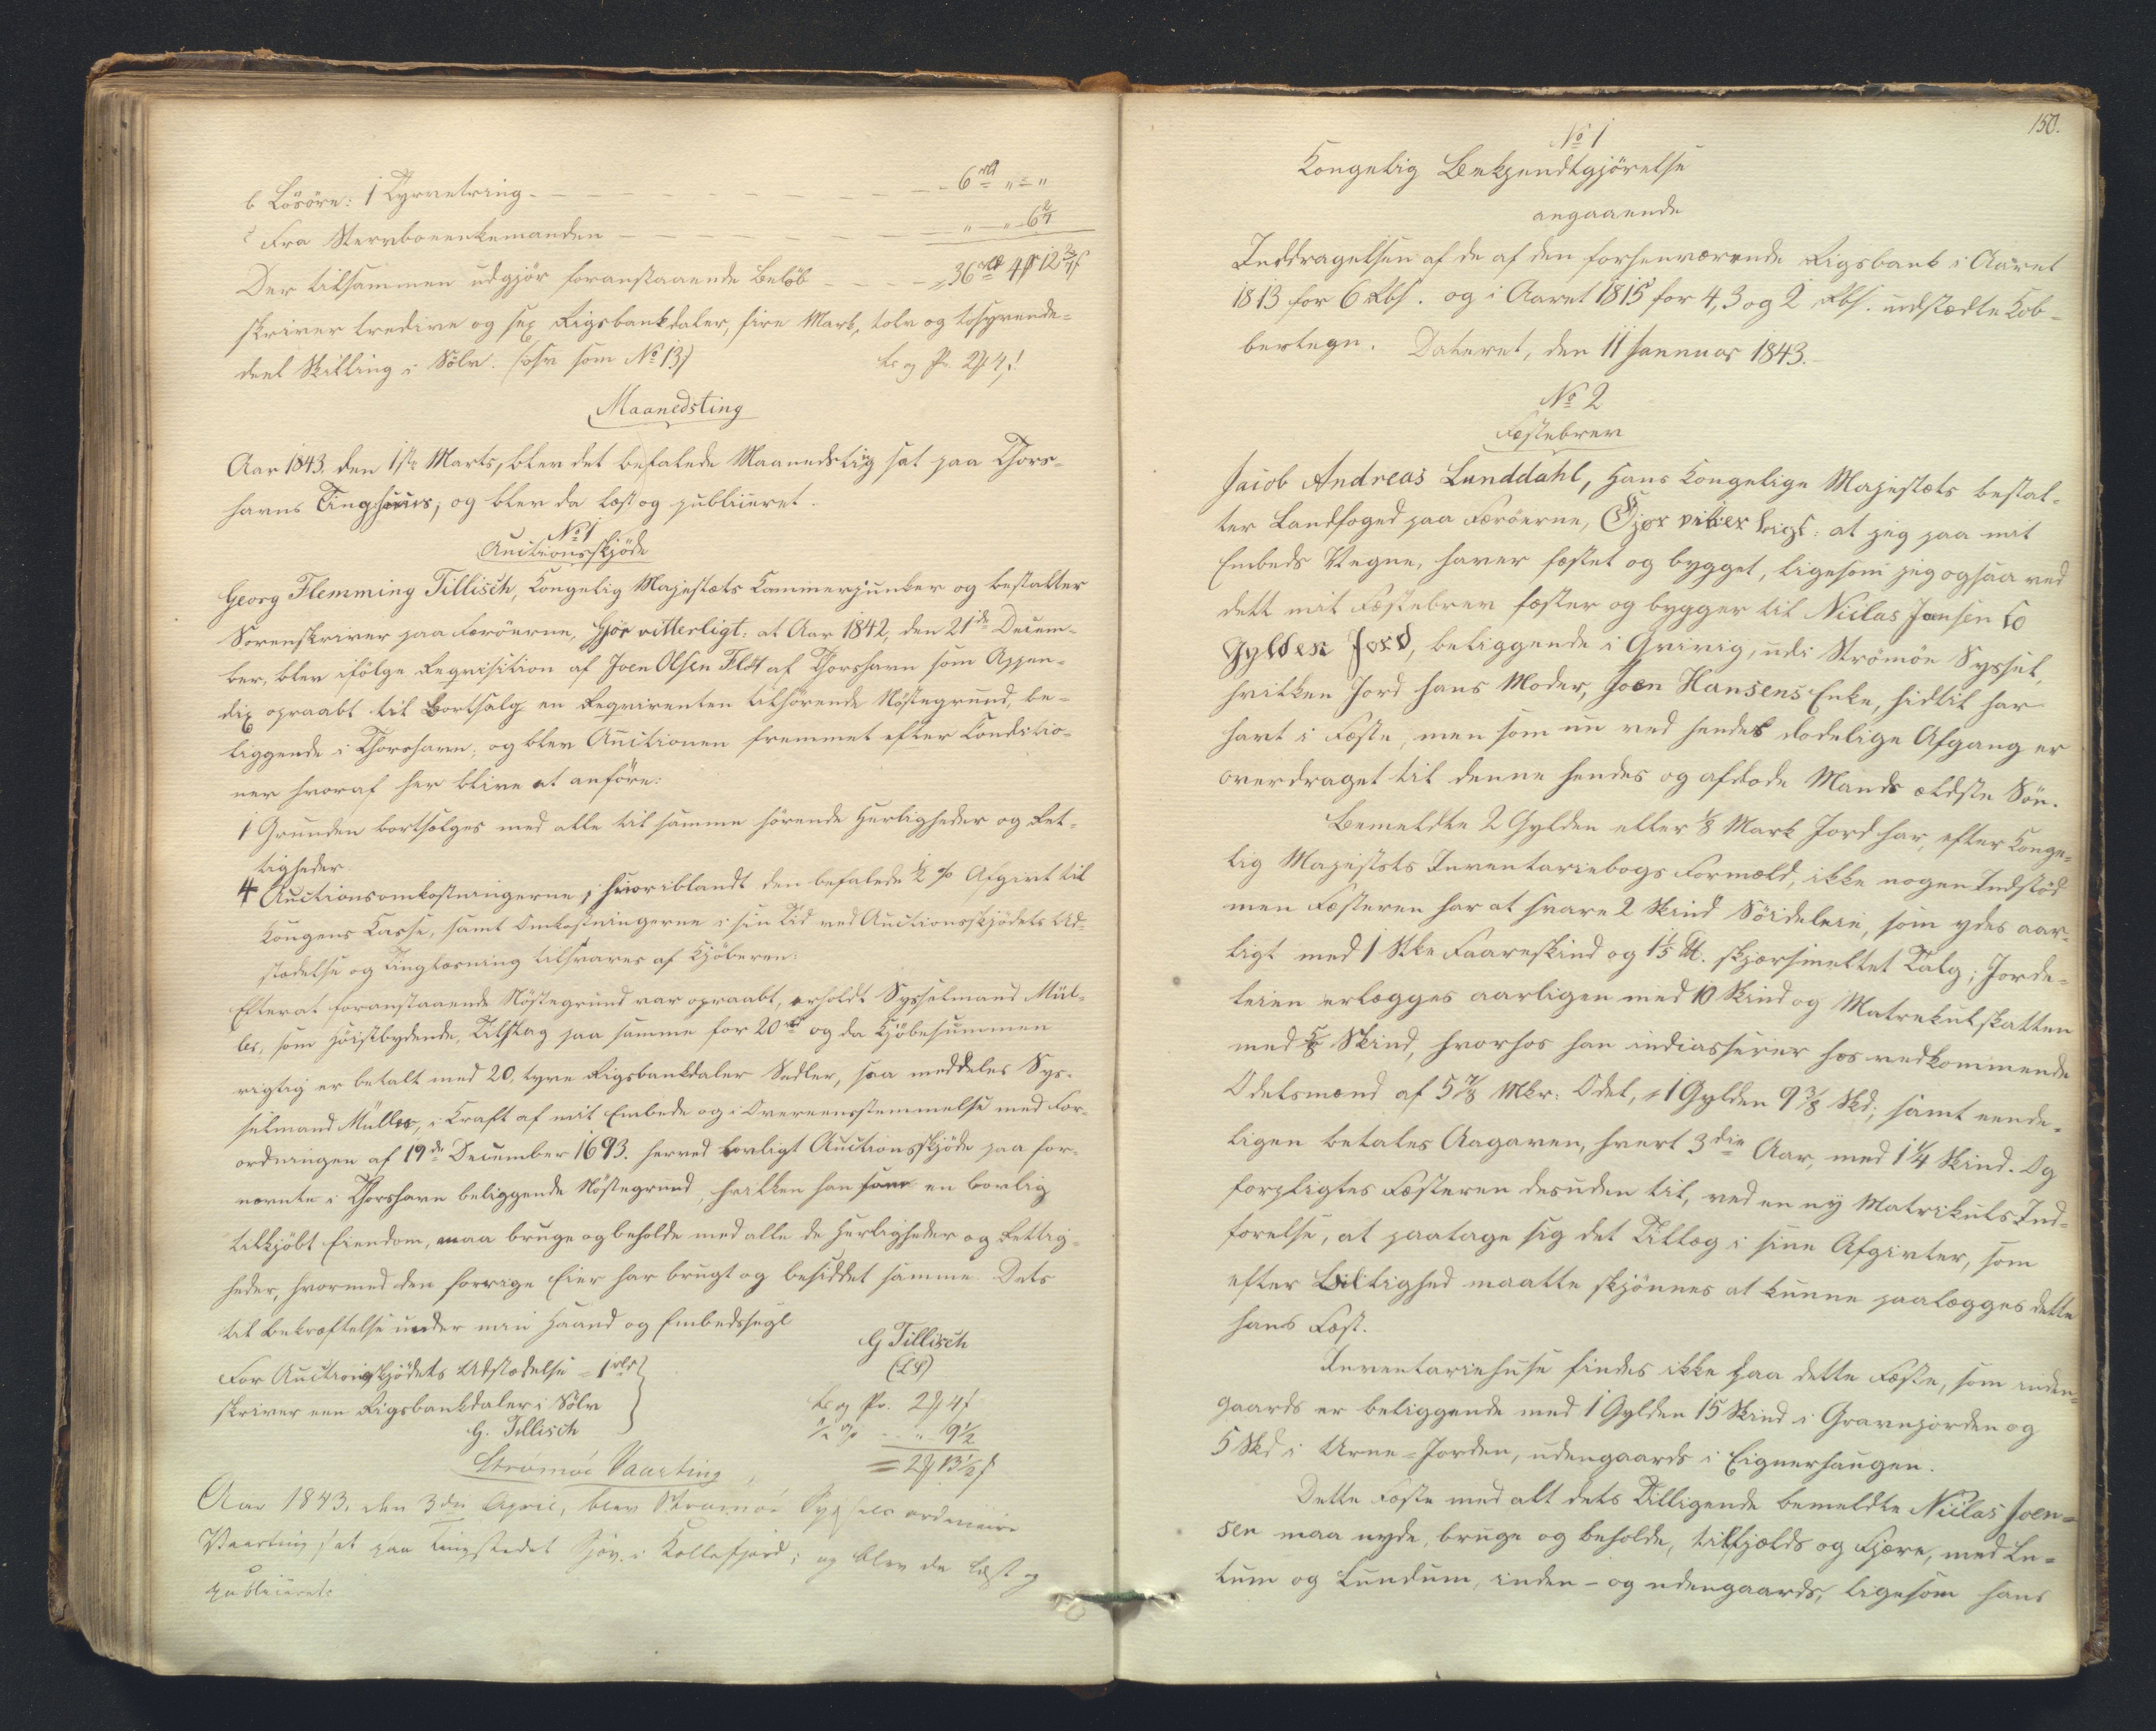 b Lösöre: 1 Tyrvetring - - - 6 rbd „ - „
c Fra Stervboeenkemanden - - - „ - „ - 6 2/7
Der tilsammen udgjör foranstaaende Beløb - - - 36 rbd 4 ℳ 12 2/7 s
skriver tredive og sex Rigsbankdaler, fire Mark, tolv og tosyvende-
deel Skilling i Sølv. (ofv som No 13)
Maanedsting
Aar 1843. den 1ste Marts, blev det befalede Maanedsting sat paa Thors-
havns Tinghuus, og blev da læst og publiceret.
No 1
Auctionsskjöde
Georg Flemming Tillisch, Kongelig Majestæts Kammerjunker og bestalter
Sorenskriver paa Færöerne, Gjör vitterligt: at Aar 1842, den 21de Decem-
ber, blev ifölge Reqvisition af Joen Olsen Fldt af Thorshavn som Appen-
dix opraabt til Bortsalg en Reqvirenten tilhörende Nöstegrund, be-
liggende i Thorshavn; og blev Auctionen fremmet efter Conditio-
ner hvoraf her blive at anföre:
1 Grunden bortsælges med alle til samme hörende Herligheder og Ret-
tigheder.
4 Auctionsomkostningerne, hvoriblandt den befalede ½ % Afgivt til
Kongens Casse, samt Omkostningerne i sin Tid ved Auctionsskjödets Ud-
stædelse og Tinglæsning tilsvares af Kjöberen.
Efterat foranstaaende Nöstegrund var opraabt, erholdt Sysselmand Mül-
ler, som höistbydende, Tilslag paa samme for 20 rbd og da Kjöbesummen
rigtig er betalt med 20, tyve Rigsbankdaler Sedler, saa meddeles Sys-
selmand Müller, i Kraft af mit Embede og i Overeensstemmelse med For-
ordningen af 19de December 1693. herved lovligt Auctionsskjöde paa for-
nævnte i Thorshavn beliggende Nöstegrund, hvilken han som en lovlig
tilkjöbt Eiendom, maa bruge og beholde med alle de Herligheder og Rettig-
heder, hvormed den forrige Eier har brugt og besiddet samme. Dets
til Bekræftelse under min Haand og Embedssegl
G Tillisch
(LS)
For Auctionsskjödets Udstædelse = 1 rbd
skriver een Rigsbankdaler i Sölv
G. Tillisch
½ % - - „ 9½
= 2 ℳ 13½ s
Strømöe Vaarting
Aar 1843. den 3die April, blev Strømöe Syssels ordinaire
Vaarting sat paa Tingstedet i Kollefjord; og blev da læst og
publiceret:
150.
No 1
Kongelig Bekjendtgjörelse
angaaende
Inddragelsen af de af den forhenværende Rigsbank i Aaret
1813 for 6 Rbs. og i Aaret 1815 for 4, 3 og 2 Rbs. udstædte Kob-
bertegn. Dateret, den 11 Januar 1843.
No 2
Fæstebrev
Jacob Andreas Lunddahl, Hans Kongelige Majestæts bestal-
ter Landfoged paa Færöerne, Gjør vitterligt: at jeg paa mit
Embeds Vegne, haver fæstet og bygget, ligesom jeg ogsaa ved
dett mit Fæstebrev fæster og bygger til Niclas Joensen to
Gylden Jord, beliggende i Qvivig, udi Strömöe Syssel,
hvilken Jord hans Moder, Joen Hansens Enke, hidtil har
havt i Fæste, men som nu ved hendes dødelige Afgang er
overdraget til denne hendes og afdøde Mands ældste Sön.
Bemeldte 2 Gylden eller ⅛ Mark Jord har, efter Konge-
lig Majestæts Inventariebogs Formeld, ikke nogen Indstöd
men Fæsteren har at svare 2 Skind Söideleie, som ydes aar-
ligt med 1 Stke Faareskind og 1⅕ ℔. skjærsmeltet Talg; Jorde-
leien erlægges aarligen med 10 Skind og Matrekulskatten
med ⅝ Skind, hvorhos han indcasserer hos vedkommende
Odelsmænd af 5⅞ Mkr: Odel, 1 Gylden 9⅜ Skd; samt eende-
ligen betales Aagaven, hvert 3die Aar, med 1¼ Skind. Og
forpligtes Fæsteren desuden til, ved en ny Matrikuls Ind-
forelse, at paatage sig det Tillæg i sine Afgivter, som
efter Billighed maatte skjönnes at kunne paalægges dette
hans Fæst.
Inventariehuse findes ikke paa dette Fæste, som inden-
gaards er beliggende med 1 Gylden 15 Skind i Gravnjorden og
5 Skd i Urne-Jorden, udengaards i Eignerhaugen.
Dette Fæste med alt dets Tilligende bemeldte Niclas Joen-
sen maa nyde, bruge og beholde, tilfjælds og Fjære, med Lu-
tum og Lundum, inden- og udengaards, ligesom hans